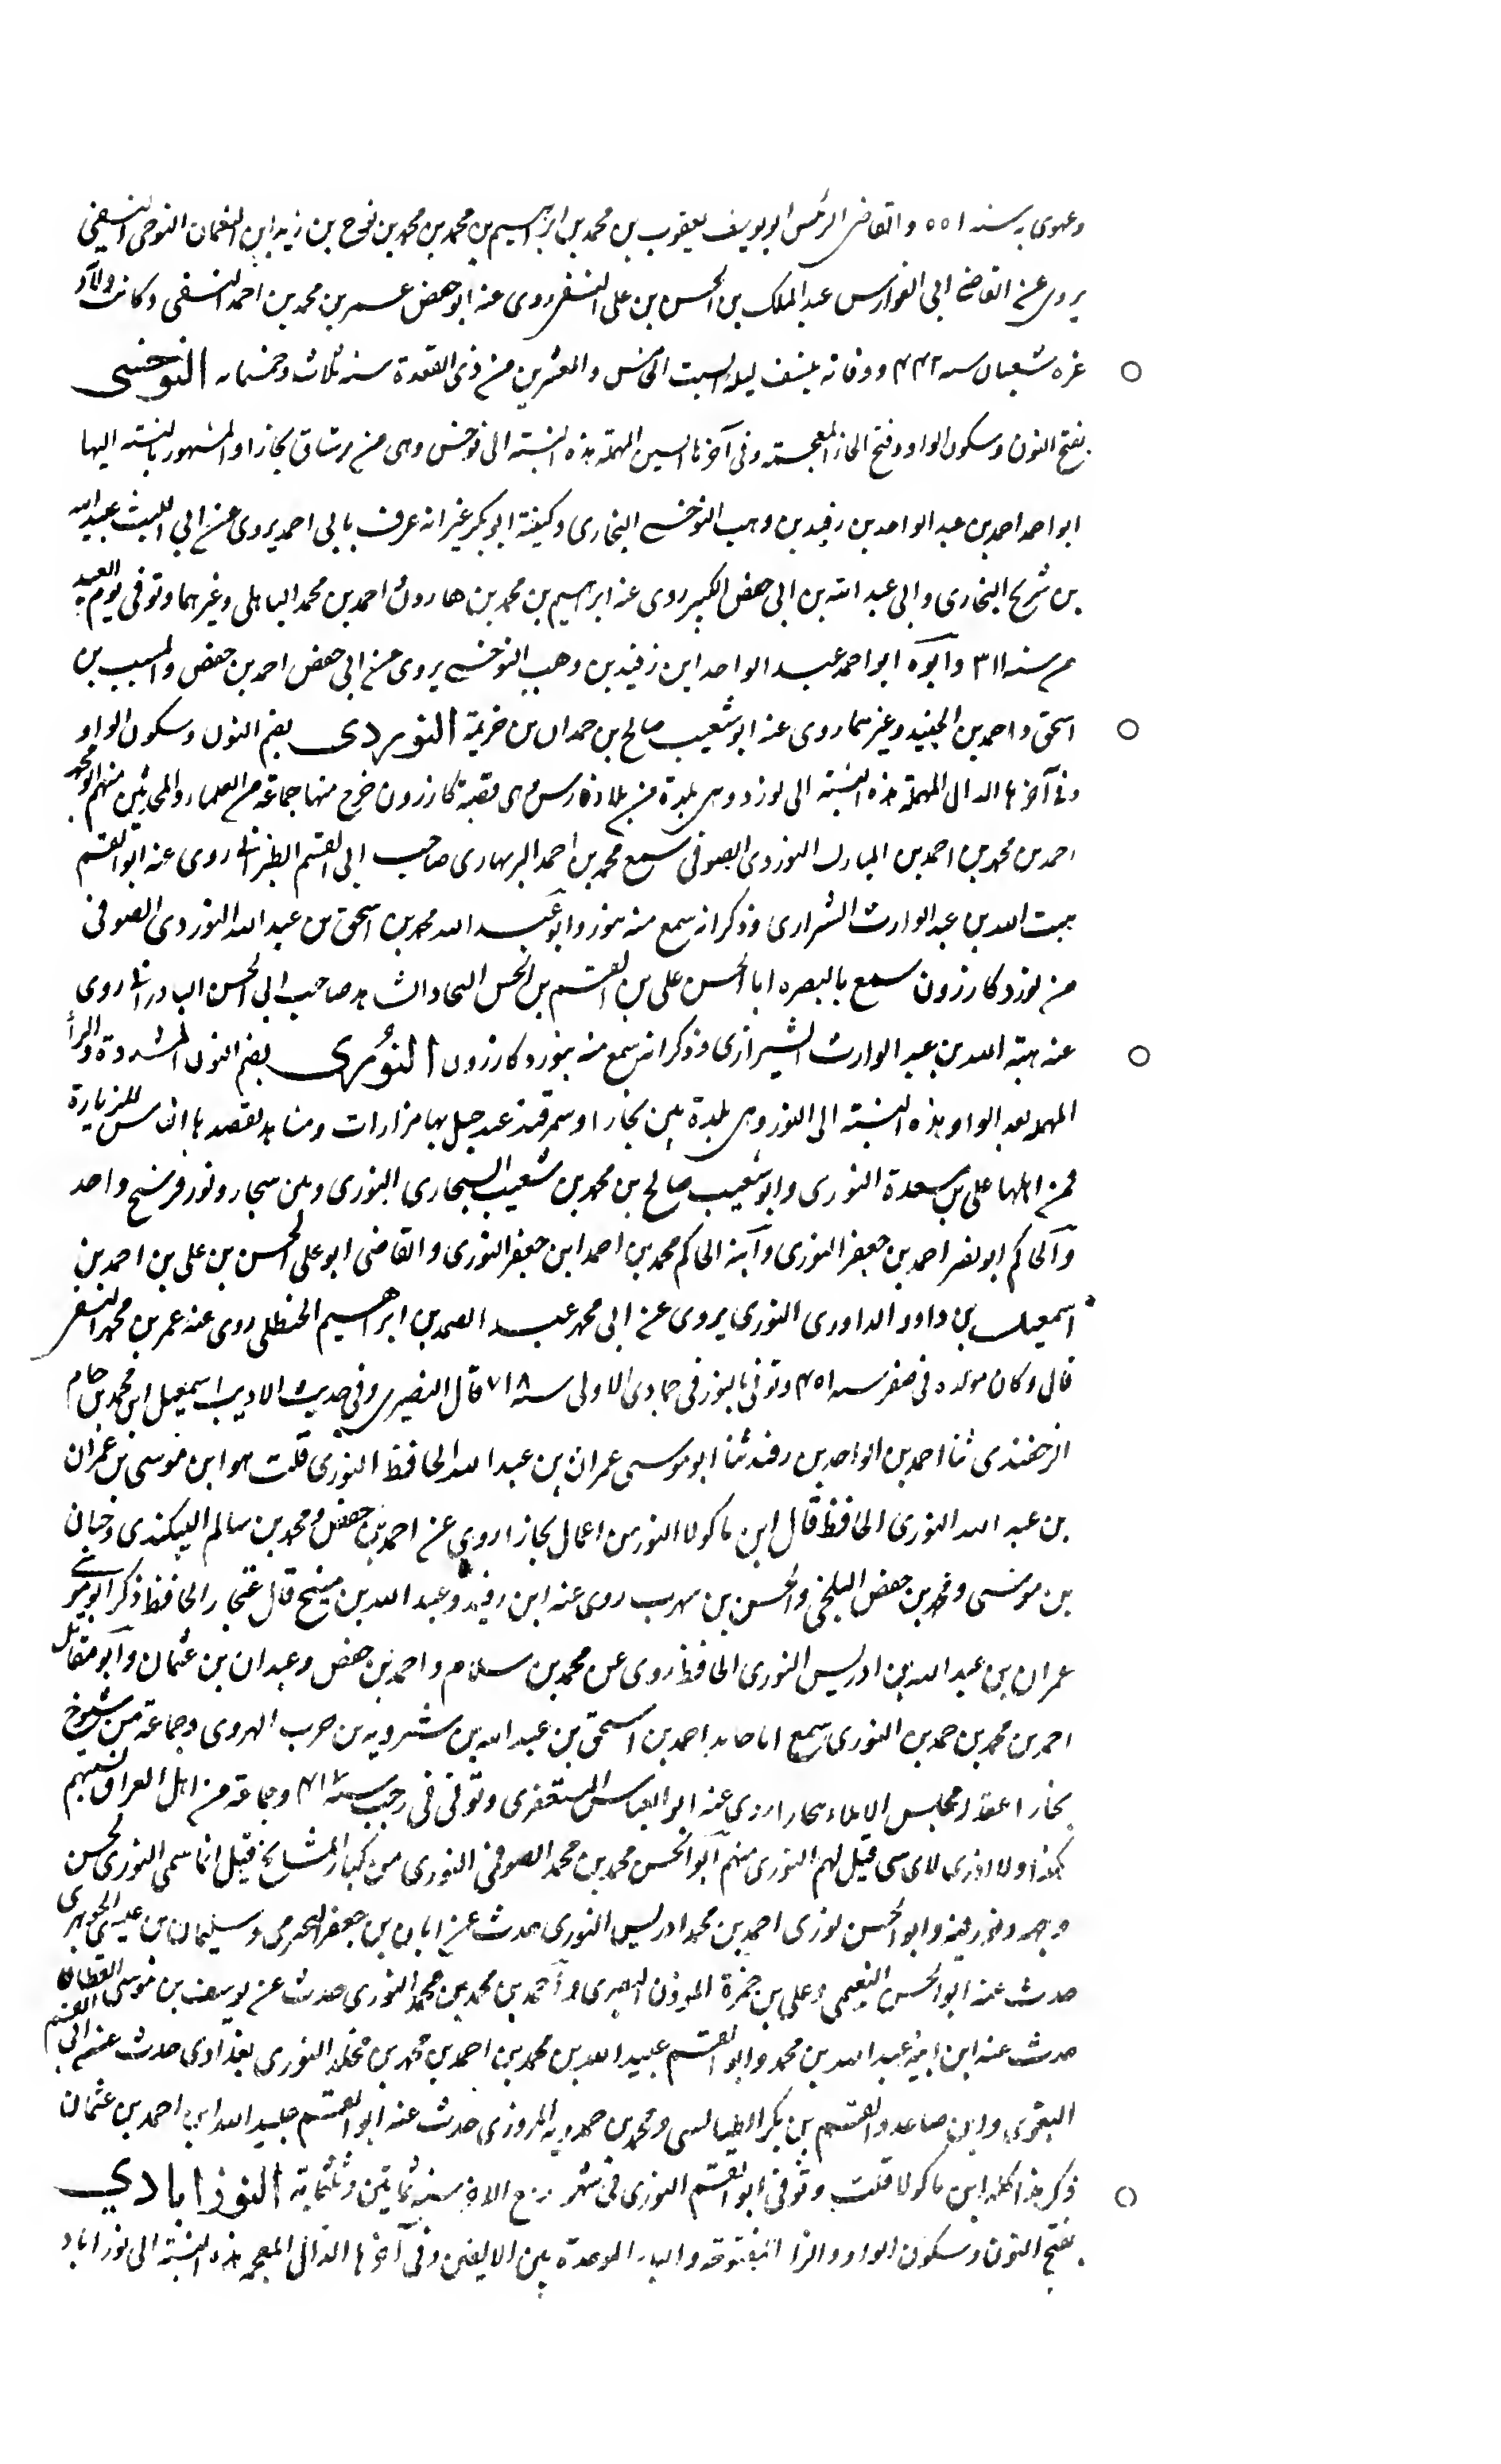 وعموى به سنه ٥٥١ والقاضى الرئيس ابويوسف يعقوب بن محمد بن ابراهيم بن محمد بن محمد بن نوح بن زيد ابن النعمان النوحى النسفى
يروى عن القاضى ابى الفوارس عبد الملك بن الحسن بن على النسفى روى عنه ابو حفص عمر بن محمد بن احمد النسفى وكانت ولادته
غره شعبان سنه ٤٤٢ ووفاته بنسف ليلة السبت الخامس والعشرين من ذى القعدة سنه ثلاث وخمسمايه النوخسى
بفتح النون وسكون الواو وفتح الخا المعجمة وفى آخرها السين المهملة هذه النسبة الى نوخس وهى من رستاق بخارا والمشهور بالنسبه اليها
ابو احمد احمد بن عبد الواحد بن رفيد بن وهب النوخسى البخارى وكنيته ابو بكر غير انه عرف بابى احمد يروى عن ابى الليث عبيد الله
بن شريح البخارى وابى عبد الله بن ابى حفص الكبير روى عنه ابراهيم بن محمد بن هارون احمد بن محمد الباهلى وغيرهما وتوفى يوم العيد
من سنه ٣١١ وابوه ابو احمد عبد الواحد ابن رفيد بن وهب النوخسى يروى عن ابى حفص احمد بن حفص والمسيب بن
اسحق واحمد بن الجنيد وغيرهما روى عنه ابو شعيب صالح بن حمدان بن خزيمة النوردى بضم النون وسكون الواو
وفى آخرها الدال المهملة هذه النسبة الى نورد وهى بلدة من بلاد فارس وهى قصبة كازرون خرج منها جماعة من العلماء والمحدثين منهم ابو محمد
احمد بن محمد بن احمد بن المبارك النوردى الصوفى سمع محمد بن احمد البربهارى صاحب ابى القسم الطبرانى روى عنه ابو القسم
هبت الله بن عبد الوارث الشيرازى وذكر انه سمع منه بنورد وابو عبد الله محمد بن اسحق بن عبد الله النوردى الصوفى
من نورد كازرون سمع بالبصره ابا الحسن على بن القسم بن الحسن النجاد الشاهد صاحب ابى الحسن البادرانى روى
عنه هبة الله بن عبد الوارث الشيرازى وذكر انه سمع منه بنورد كازرون النُورى بضم النون المشددة والرأ
المهمله بعد الواو هذه النسبة الى النور وهى بلدة بين بخارا وسمرقند عند جبل بها مزارات ومشاهد يقصدها الناس للزيارة
فمن اهلها على بن سعدة النورى وابو شعيب صالح بن محمد بن شعيب السجارى النورى وبين سجار ونور فرسخ واحد
والحاكم ابو نصر احمد بن جعفر النورى وابنه الحاكم محمد بن احمد ابن جعفر النورى والقاضى ابو على الحسن بن على بن احمد بن
اسمعيل بن داود الداورى النورى يروى عن ابى محمد عبد الصمد بن ابراهيم الحنظلى روى عنه عمر بن محمد النسفى
قال وكان مولده فى صفر سنه ٤٥١ وتوفى بالنور فى جمادى الاولى سنه ٧١٨ قال البصيرى وفى حديث الاديب اسمعيل ابن محمد بن حام
الزخفندى ثنا احمد بن الواحد بن رفيد ثنا ابو موسى عمران بن عبد الله الحافظ النورى قلت هو ابن موسى بن عمران
بن عبد الله النورى الحافظ قال ابن ماكولا النور من اعمال بخارا روى عن احمد بن حفص ومحمد بن سالم البيكندى وحبان
بن موسى ومحمد بن حفص البلخى والحسن بن سهرب روى عنه ابن رفيد وعبد الله بن منيح قال غنجار الحافظ ذكر ابو موسى
عمران بن عبد الله بن ادريس النورى الحافظ روى عن محمد بن سلام واحمد بن حفص وعبدان بن عثمان وابو مقاتل
احمد بن محمد بن حمد بن النورى سمع ابا حامد احمد بن اسحق بن عبد الله بن شيرويه بن حرب الهروى وجماعة من شيوخ
بخارا عقد المجلس الاملاء ببخارا روى عنه ابو العباس المستغفرى وتوفى فى رجب سنه ٤١٢ وجماعة من اهل العراق نسبتهم
كهذا ولا ادرى لاى شى قيل لهم النورى منهم ابو الحسن محمد بن محمد الصوفى النورى من كبار المشايخ قيل انما سمى النورى لحسن
وجهه ونوريته وابو الحسن نورى احمد بن محمد ادريس النورى حدث عن ابان بن جعفر النجيرمى وسليمان بن عيسى الجوهرى
حدث عنه ابو الحسن النعيمى وعلى بن حمزة المؤذن البصرى واحمد بن محمد بن محمد النورى حدث عن يوسف بن موسى القطان
حدث عنه ابن ابنه عبد الله بن محمد وابو القسم عبيد الله بن محمد بن احمد بن محمد بن مخلد النورى بغدادى حدث عن ابى القسم
البغوى وابن صاعد والقسم بن بكر الطيالسى ومحمد بن حمدويه المروزى حدث عنه ابو القسم عبيد الله ابن احمد بن عثمان
ذكر هذا كله ابن ماكولا قلت وتوفى ابو القسم النورى فى شهر ربيع الاخر سنه ثمانين وثلثماية النوزابادي
بفتح النون وسكون الواو والزا المفتوحه والباء الموحدة بين الالفين وفى آخرها الدال المعجمه هذه النسبة الى نوزاباد